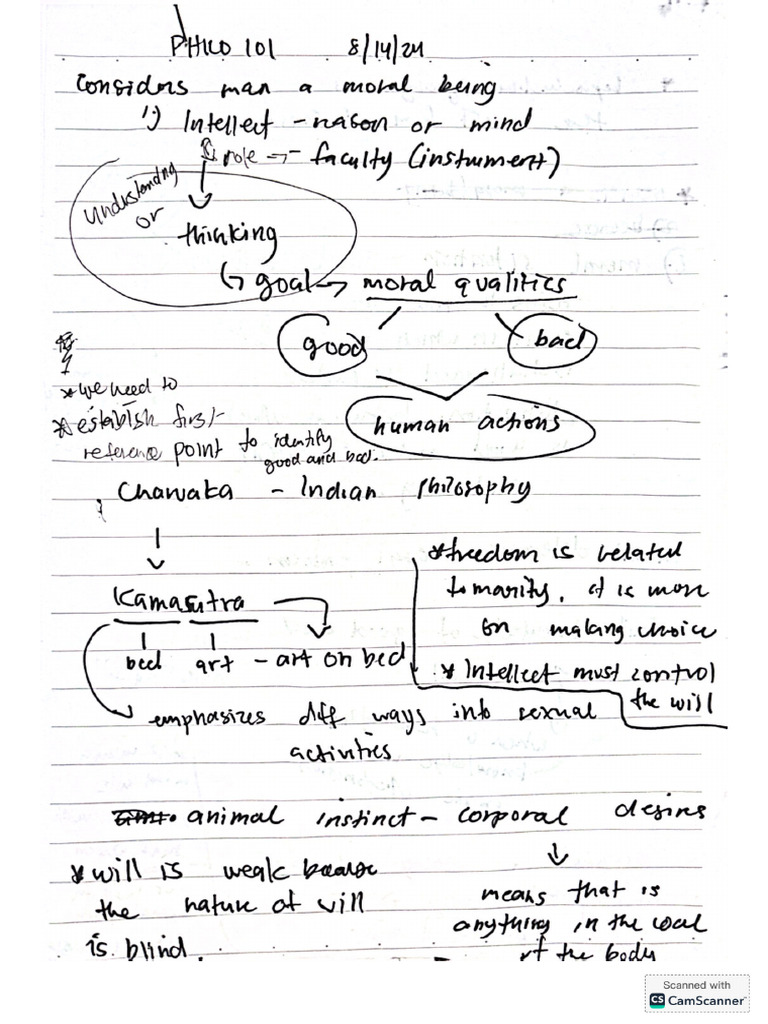 PHILO 101 8/14/24
Considers man a moral being
1) Intellect - reason or mind
role → - faculty (instrument)
understanding
or
thinking
↳ goal → moral qualities
good bad
human actions
* we need to
* establish first
reference point to identify
good and bad.
Charvaka - Indian Philosophy
↓
Kamasutra
bed art - art on bed
emphasizes diff ways into sexual
activities
* freedom is related
to marity, it is more
on making choice
* Intellect must control
the will
animal instinct - corporal desires
↓
means that is
anything in the
of the body
* will is weak because
the nature of will
is blind.
Scanned with
CS CamScanner